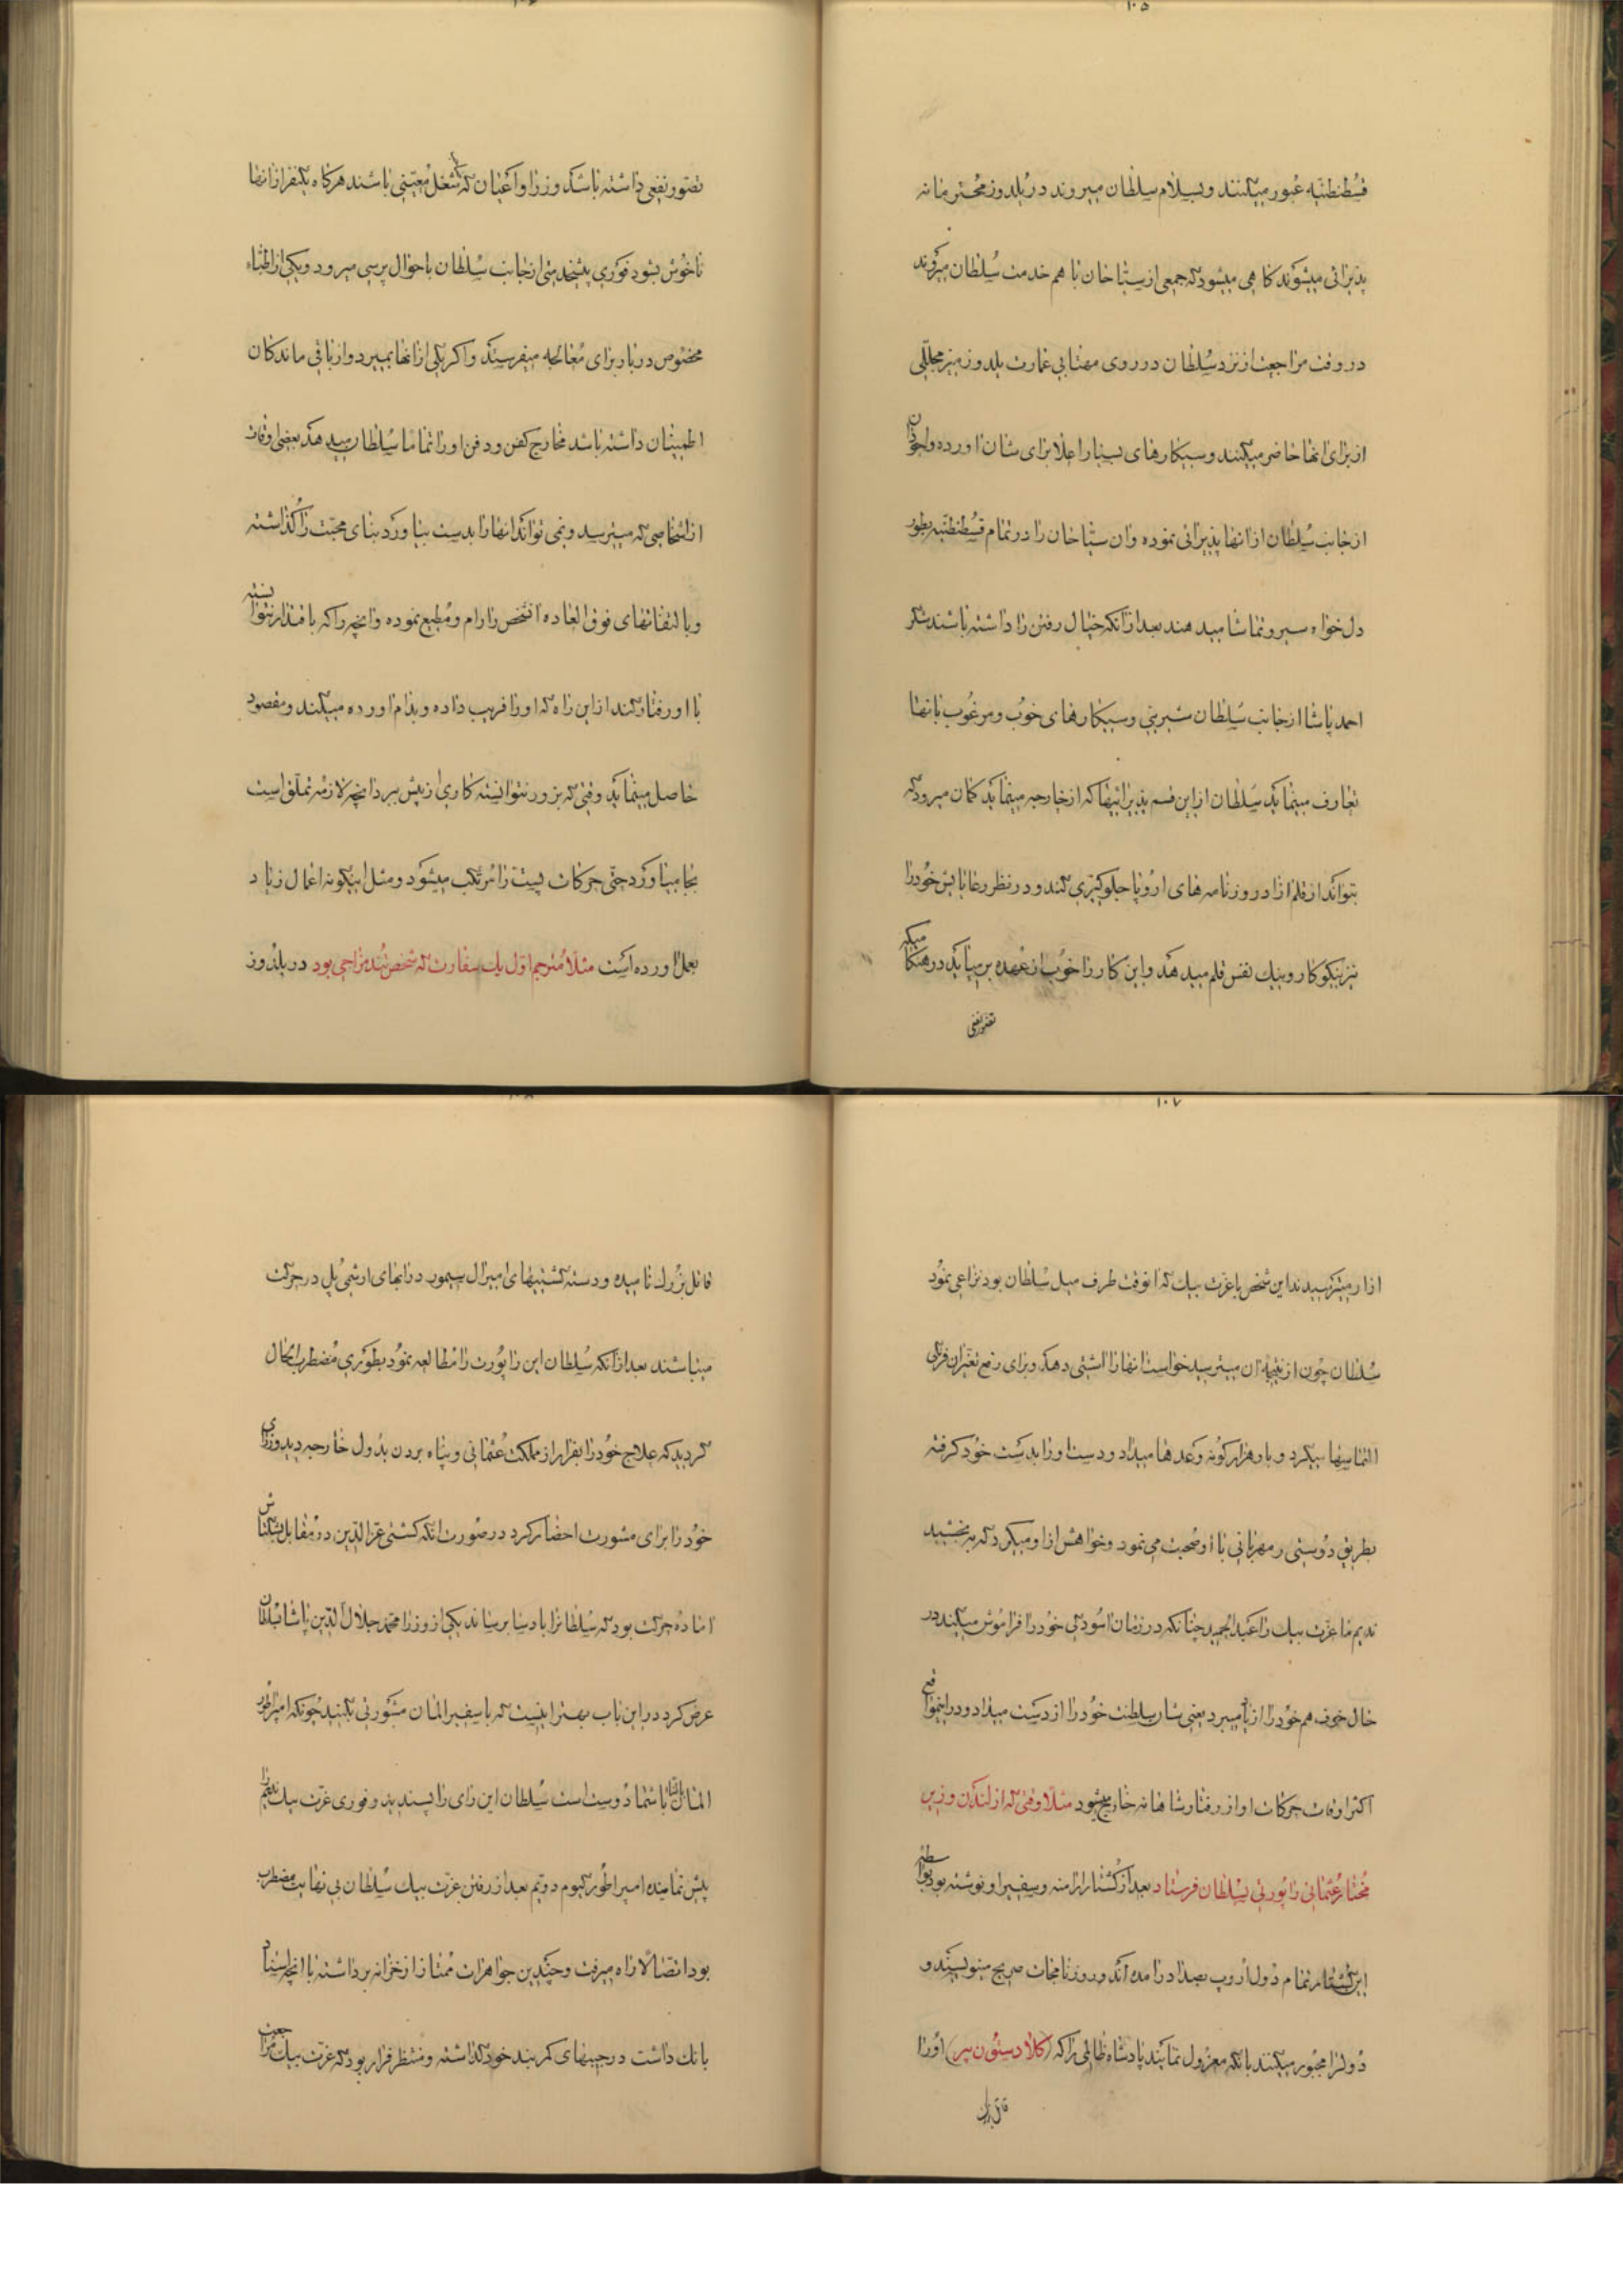 ۱۰۵
قسطنطنیه عبور میکنند و بسلام سلطان میروند در یلدوز محترمانه
پذیرائی میشوند کاهی میشود که جمعی از سیاحان با هم خدمت سلطان میروند
در وقت مراجعت از نزد سلطان در روی مهتابی عمارت یلدوز میز مجللی
از برای انها حاضر میکنند و سیکارهای بسیار اعلا برای شان اورده و اجودان
از جانب سلطان از انها پذیرائی نموده و ان سیاحان را در تمام قسطنطنیه بطور
دل خواه سیر و تماشا میدهند بعد از انکه خیال رفتن را داشته باشند شکر
احمد پاشا از جانب سلطان شیرینی و سیکارهای خوب و مرغوب بانها
تعارف مینماید سلطان از این قسم پذیرائیها که از خارجه مینماید کمان میرود که
بتواند از قلم ازاد روزنامه های اروپا جلوکیری کند و در نظر رعایایش خود را
نیز نیکوکار و نیک نفس قلم میدهد و این کار را خوب از عهده بر میاید در هنکامیکه
تصور نفعی
۱۰۶
تصور نفعی داشته باشد وزرا و اعیان که بشغل معینی باشند هرکاه یکنفر از انها
ناخوش بشود فوری پیشخدمتی از جانب سلطان باحوال پرسی میرود و یکی از اطباء
مخصوص دربار برای معالجه میفرستد و اکر یکی از انها بمیرد و از باقی ماندکان
اطمینان داشته باشد مخارج کفن و دفن او را تماما سلطان میدهد بعضی اوقات
از اشخاصی که میترسد و نمی تواند انها را بدست بیاورد بنای محبت را کذاشته
و بالتفاتهای فوق العاده انشخص را رام و مطیع نموده و انچه را که باقتدار نتوانسته
با او رفتار کند از این راه که او را فریب داده و بدام اورده میکند و مقصود
حاصل مینماید وقتی که بزور نتوانسته کاری از پیش ببرد انچه لازمه تملق است
بجا میاورد حتی حرکات پست را مرتکب میشود و مثل اینکونه اعمال زیاد
بعمل اورده است مثلا مترجم اول یک سفارت که شخص تند مزاجی بود در یلدوز
۱۰۷
از او میترسیدند این شخص با عزت بیک که انوقت طرف میل سلطان بود نزاعی نمود
سلطان چون از نتیجه ان میترسید خواست انها را اشتی دهد و برای رفع تغیر ان فرنکی
التماسها میکرد و باو هزار کونه وعدها میداد و دست او را بدست خود کرفته
بطریق دوستی و مهربانی با او صحبت می نمود و خواهش از او میکرد که به بخشید
ندیم ما عزت بیک را عبدالحمید چنانکه در زمان اسودکی خود را فراموش میکند در
حال خوف هم خود را از یاد میبرد یعنی شان سلطنت خود را از دست میداد و در اینمواقع
اکثر اوقات حرکات او از رفتار شاهانه خارج میشود مثلا وقتی که از لندن وزیر
مختار عثمانی راپورتی بسلطان فرستاد بعد از کشتار ارامنه و سفیر او نوشته بود بواسطه
این کشتار تمام دول اروپ بصدا درامده اند و روزنامجات صریح مینویسند و
دول را مجبور میکنند بانکه معزول نمایند پادشاه ظالمی را که (کلادستون پیر) او را
قاتل بزرک
۱۰۸
قاتل بزرک نامیده و دسته کشتیهای امیرال سیمور در ابهای ارشی پل در حرکت
میباشند بعد از انکه سلطان این راپورت را مطالعه نمود بطوری مضطرب الحال
کردید که علاج خود را بفرار از مملکت عثمانی و پناه بردن بدول خارجه دید وزرای
خود را برای مشورت احضار کرد در صورت انکه کشتی عزالدین در مقابل بشکتاش
اماده حرکت بود که سلطانرا بادسا برساند یکی از وزرا محمد جلال الدین پاشا بسلطان
عرض کرد در این باب بهتر اینست که با سفیر المان مشورتی بکنید چونکه امپراطور
المان با شما دوست است سلطان این رای را پسندید و فوری عزت بیک ندیم را
پیش نماینده امپراطور کیوم دویم بعد از رفتن عزت بیک سلطان بی نهایت مضطرب
بود اتصالا راه میرفت و چندین جواهرات ممتاز از خزانه برداشته با انچه اسناد
بانک داشت در جیبهای کمربند خود کذاشته و منتظر فرار بود که عزت بیک مراجعت